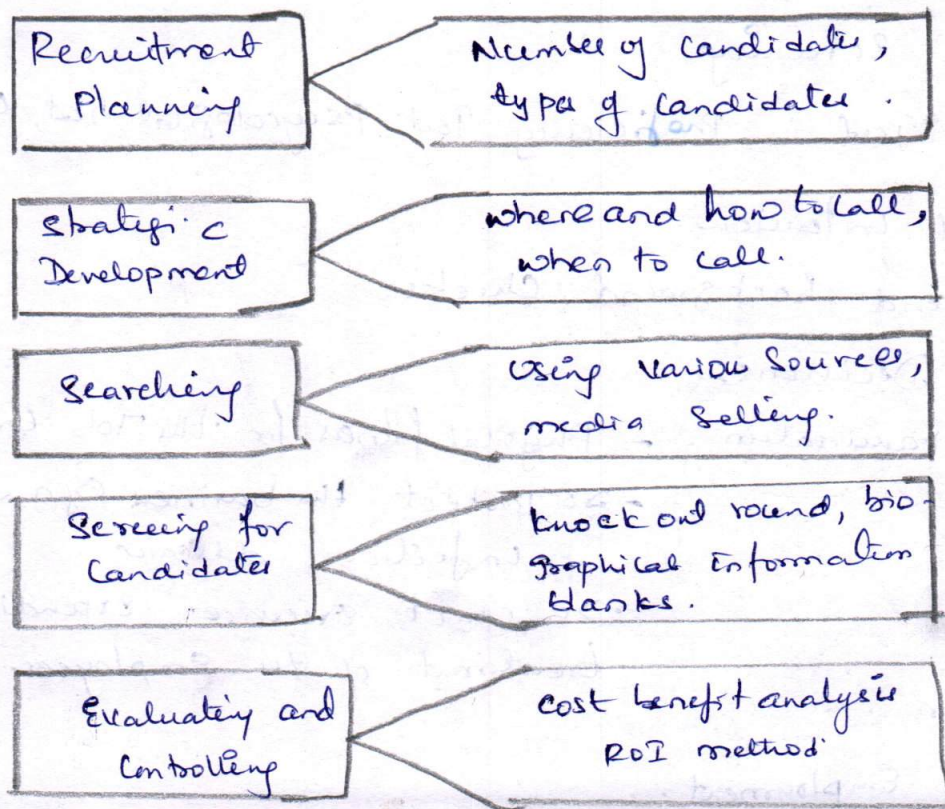 Recruitment
Planning
Number of candidates,
types of candidates.
Strategic
Development
where and how to call,
when to call.
Searching
Using various sources,
media selling.
Screeing for
Candidates
knock out round, bio-
graphical information
blanks.
Evaluating and
Controlling
cost benefit analysis
ROI method